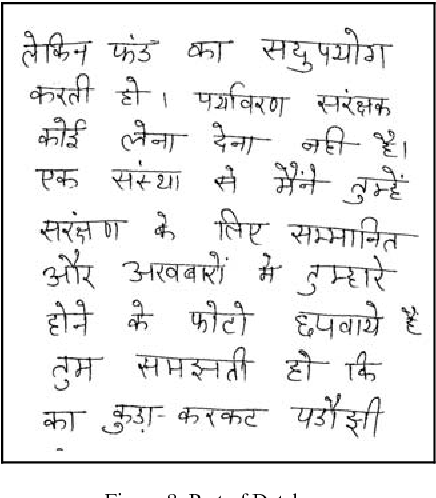 लेकिन फंड का सदुपयोग
करती हो । पर्यावरण संरक्षक
कोई लेना देना नही है।
एक संस्था से मैंने तुम्हें
संरक्षण के लिए सम्मानित
और अखबारों मे तुम्हारे
होने के फोटो छपवाये है
तुम समझती हो कि
का कुडा-करकट पडौसी